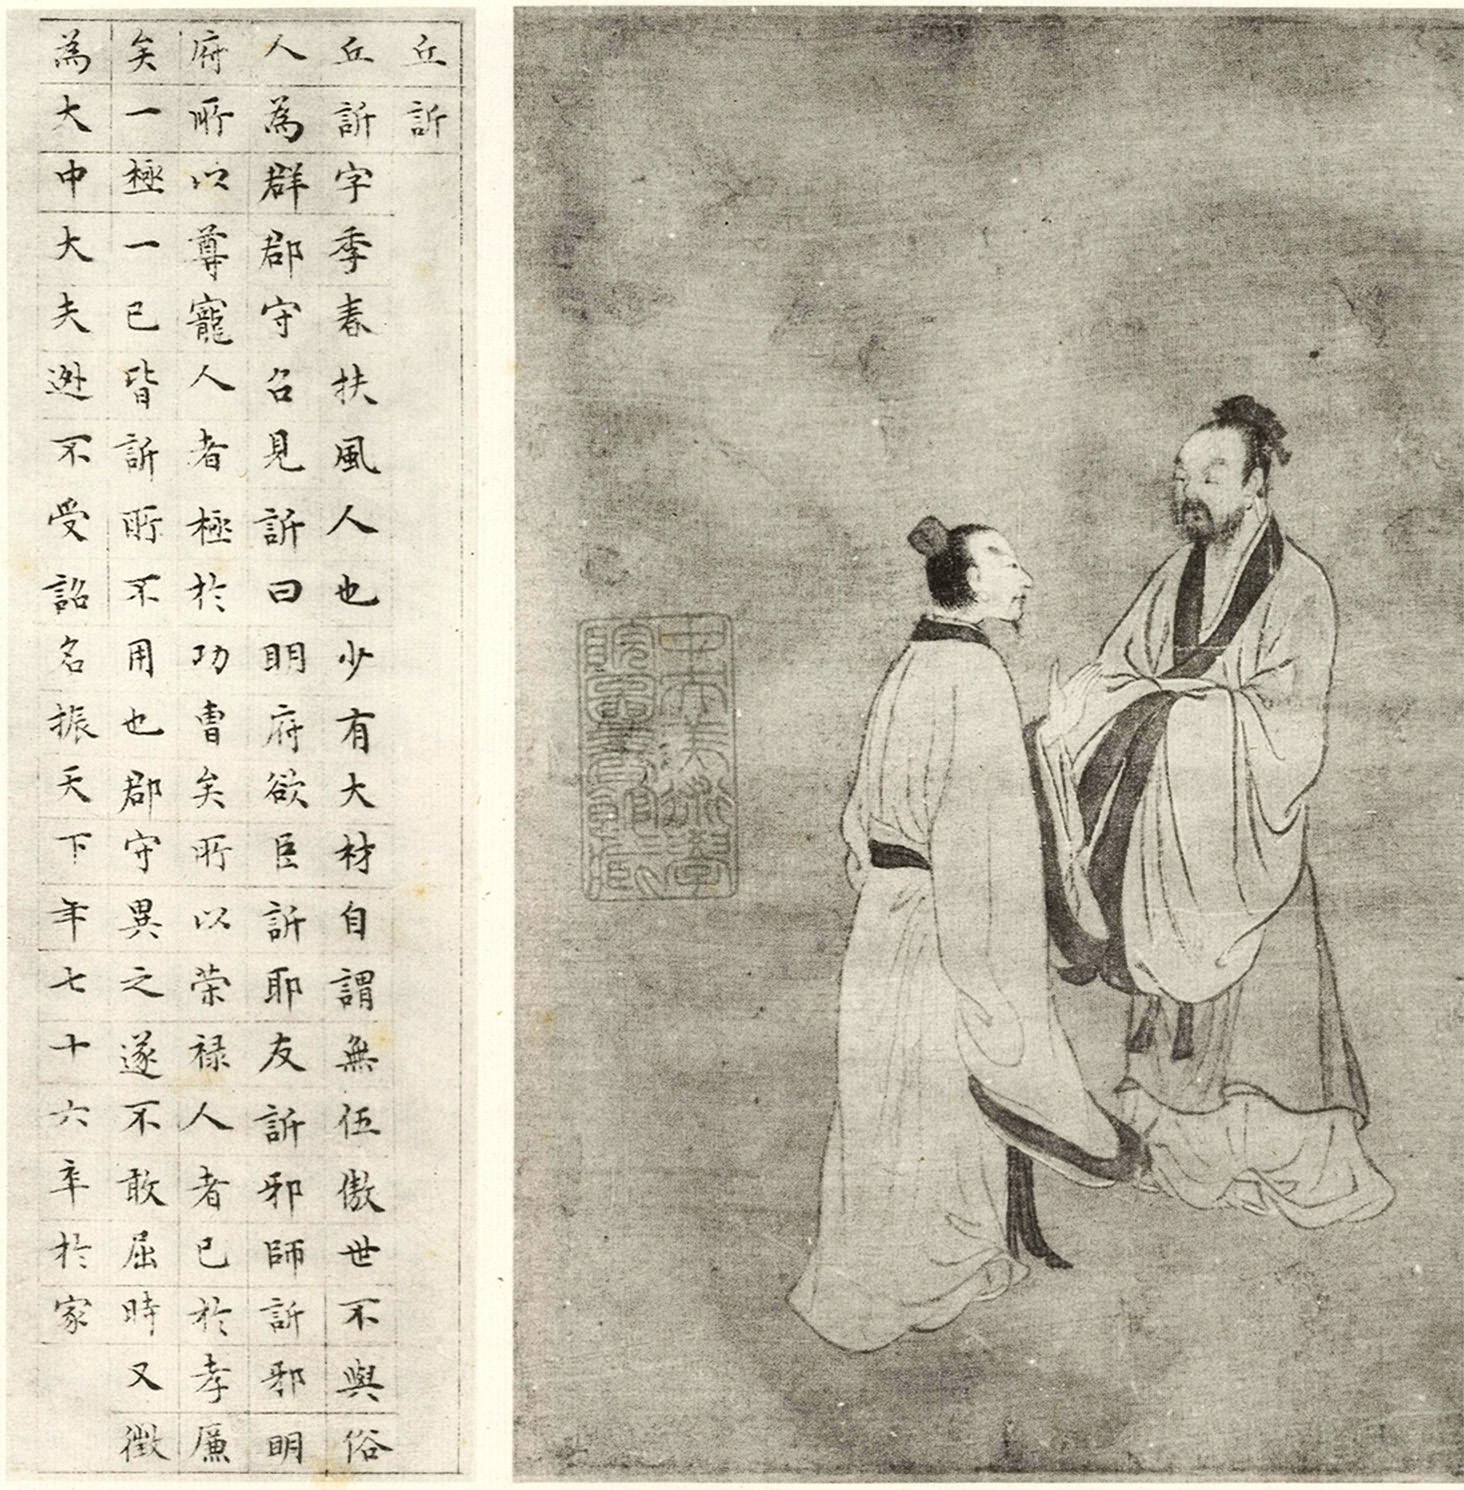 丘訢
丘訢字季春扶風人也少有大材自謂無伍傲世不與俗
人為群郡守召見訢曰明府欲臣訢耶友訢邪師訢邪明
府所以尊寵人者極於功曹矣所以荣禄人者已於孝廉
矣一極一已皆訢所不用也郡守異之遂不敢屈時又徵
為大中大夫逃不受詔名振天下年七十六卒於家
中央美術學
院圖書館藏